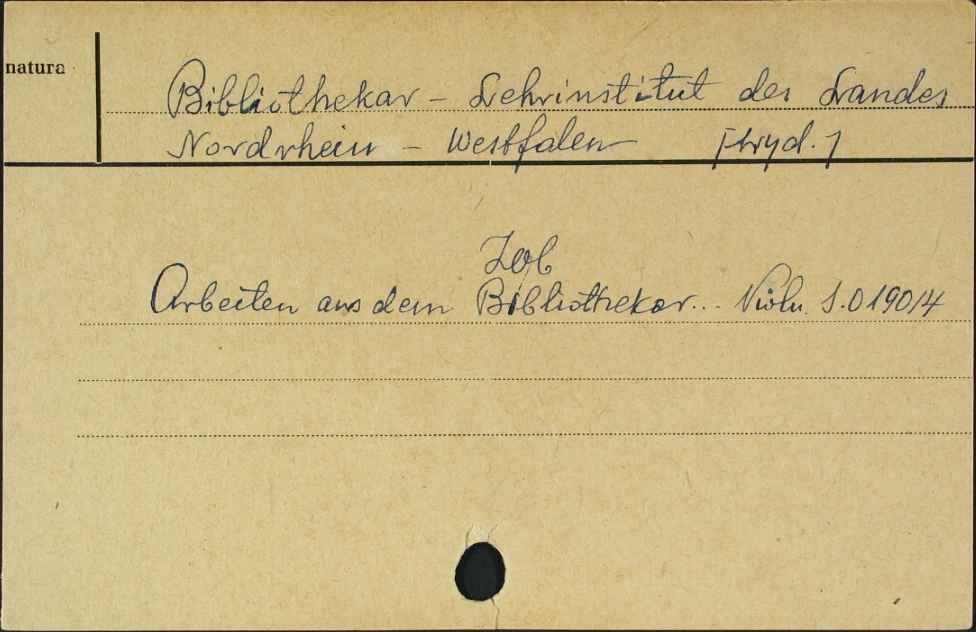 natura
Bibliothekar - Lehrinstitut des Landes
Nordrhein - Westfalen [wyd.]
Zob
Arbeiten aus dem Bibliothekar... Köln. S.01901/4